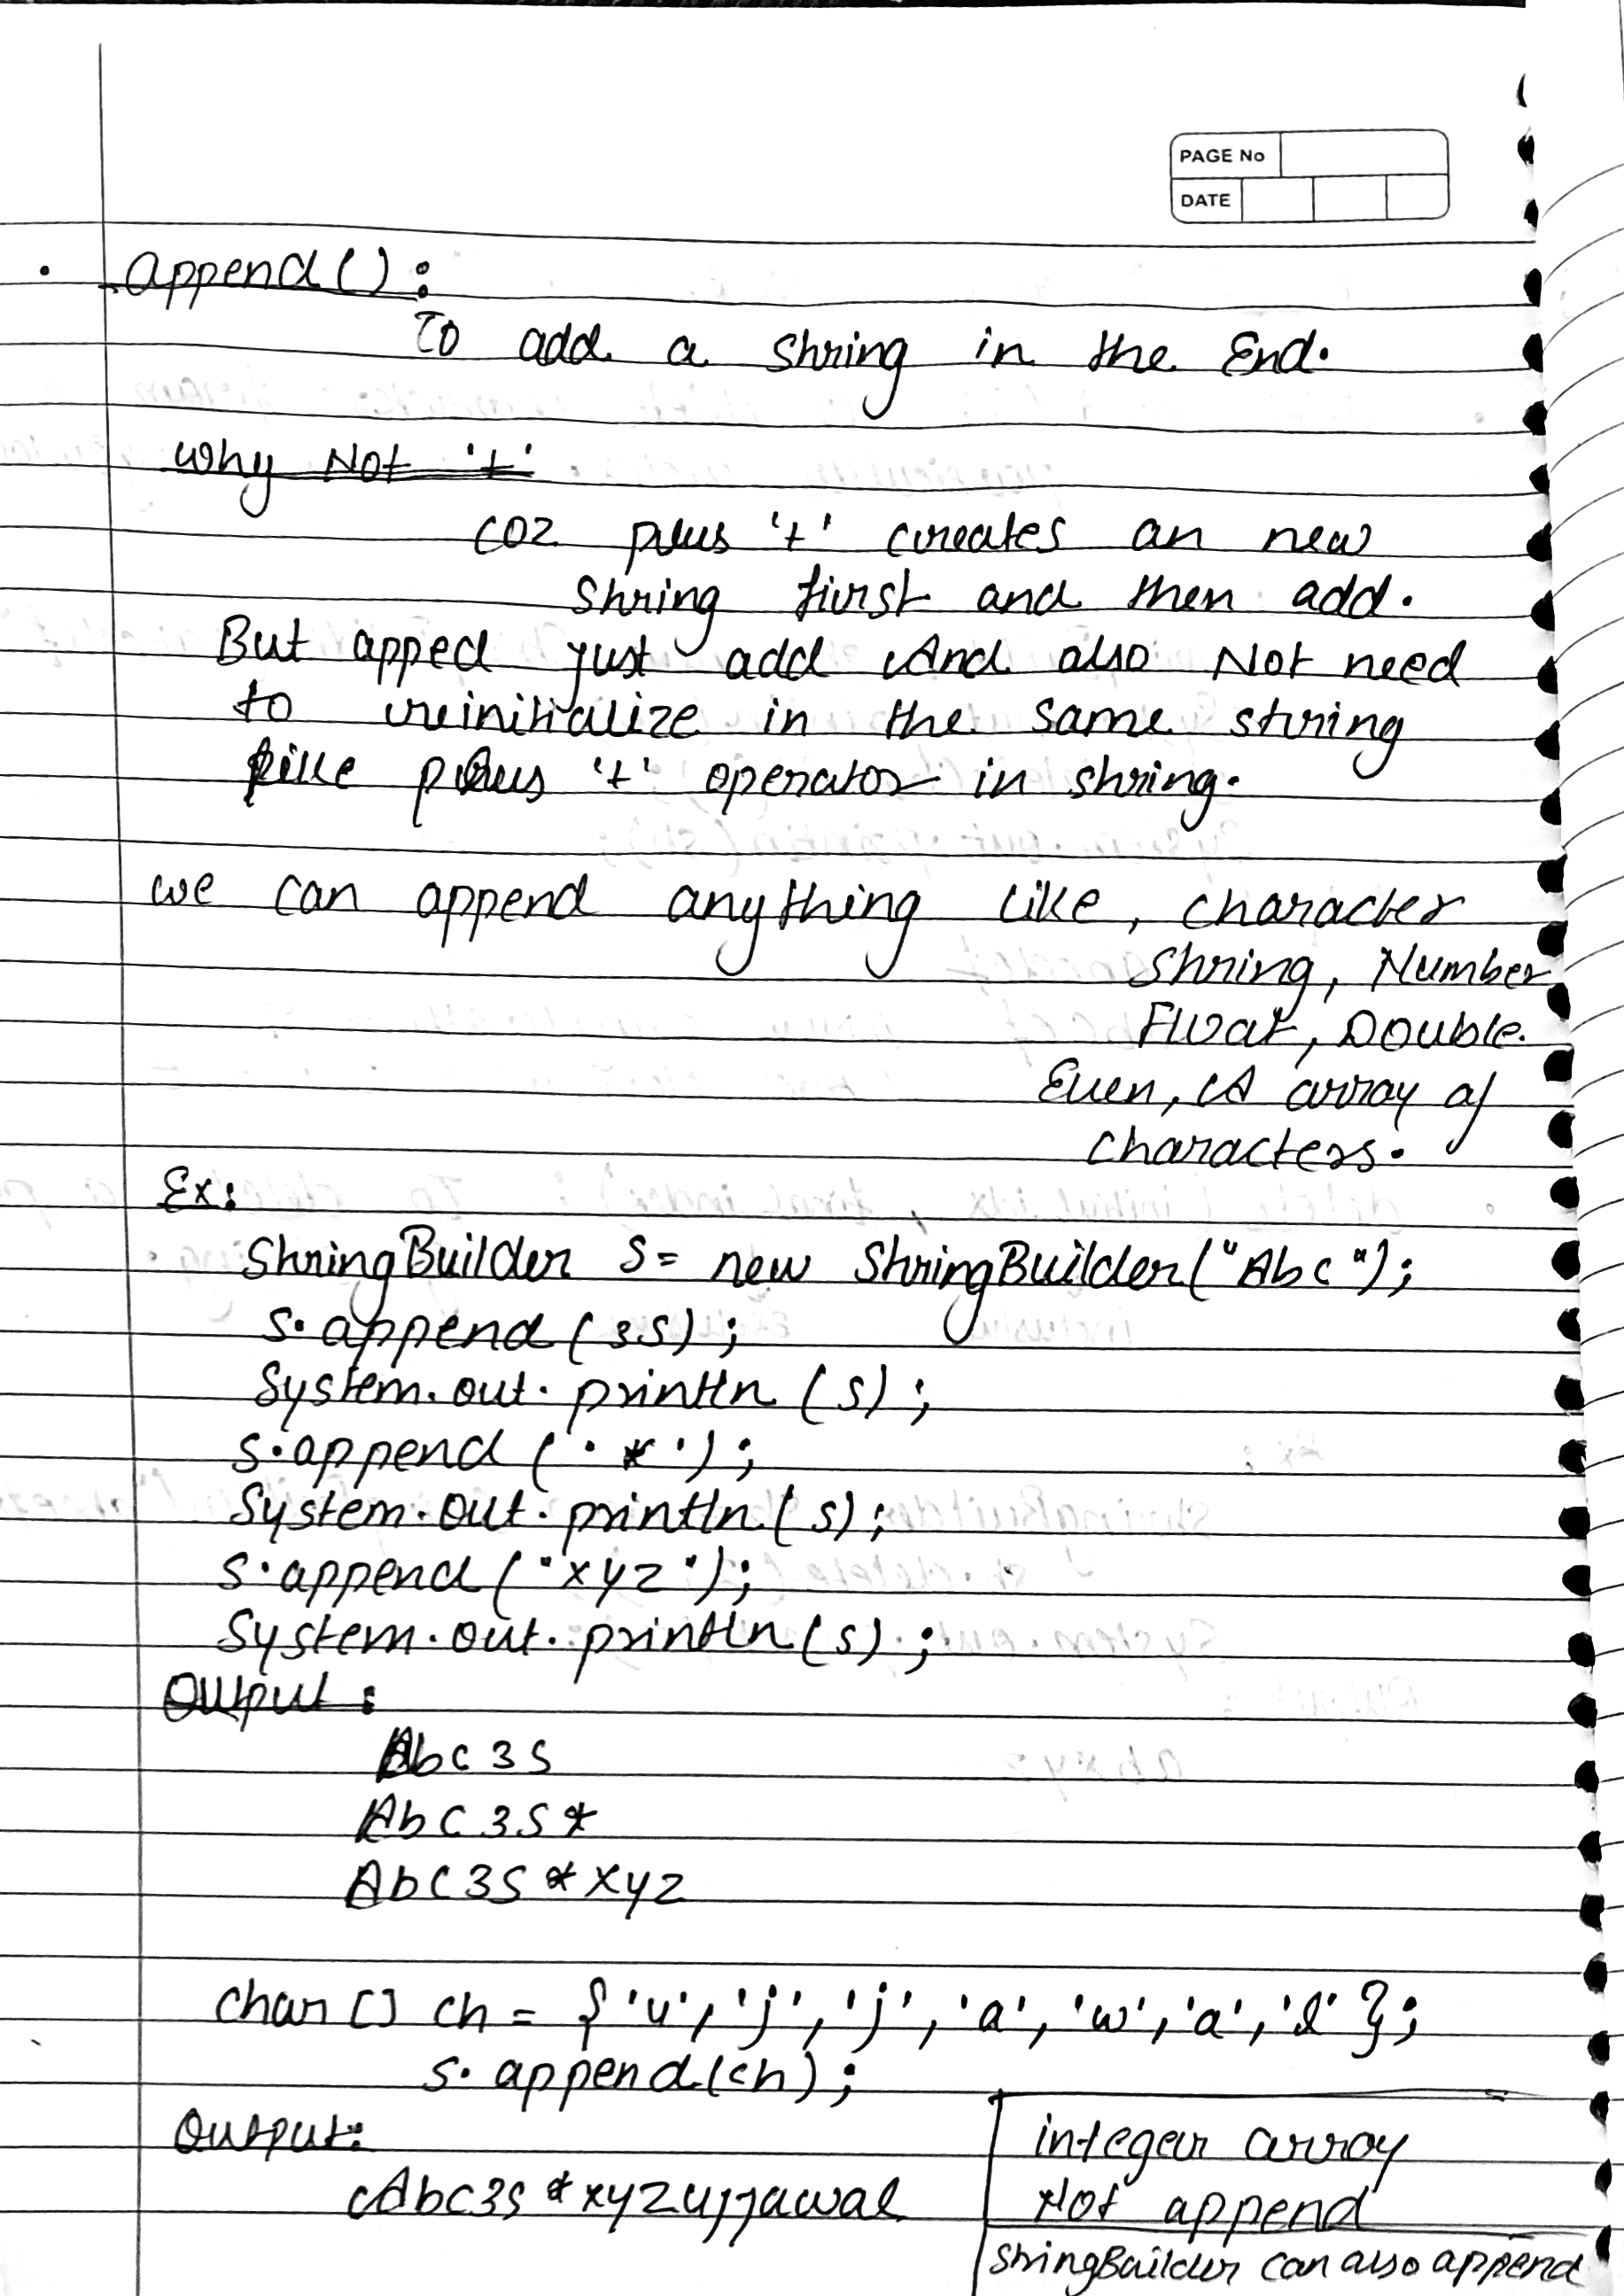 PAGE No
DATE
• append():
To add a string in the End.
Why Not '+'
coz plus '+' creates an new
string first and then add.
But apped just add And also Not need
to reinitialize in the same string
like plus '+' operator in string.
we can append anything like, character
string, Number
Float, Double.
Even, A array of
characters.
Ex:
StringBuilder s= new StringBuilder("Abc");
s.append(35);
System.out.println(s);
s.append('*');
System.out.println(s);
s.append("xyz");
System.out.println(s);
Output:
Abc35
Abc35*
Abc35*xyz
char[] ch = {'u','j','j','a','w','a','l'};
s.append(ch);
Output:
Abc35*xyzujjawal
integer array
Not append
StringBuilder can also append